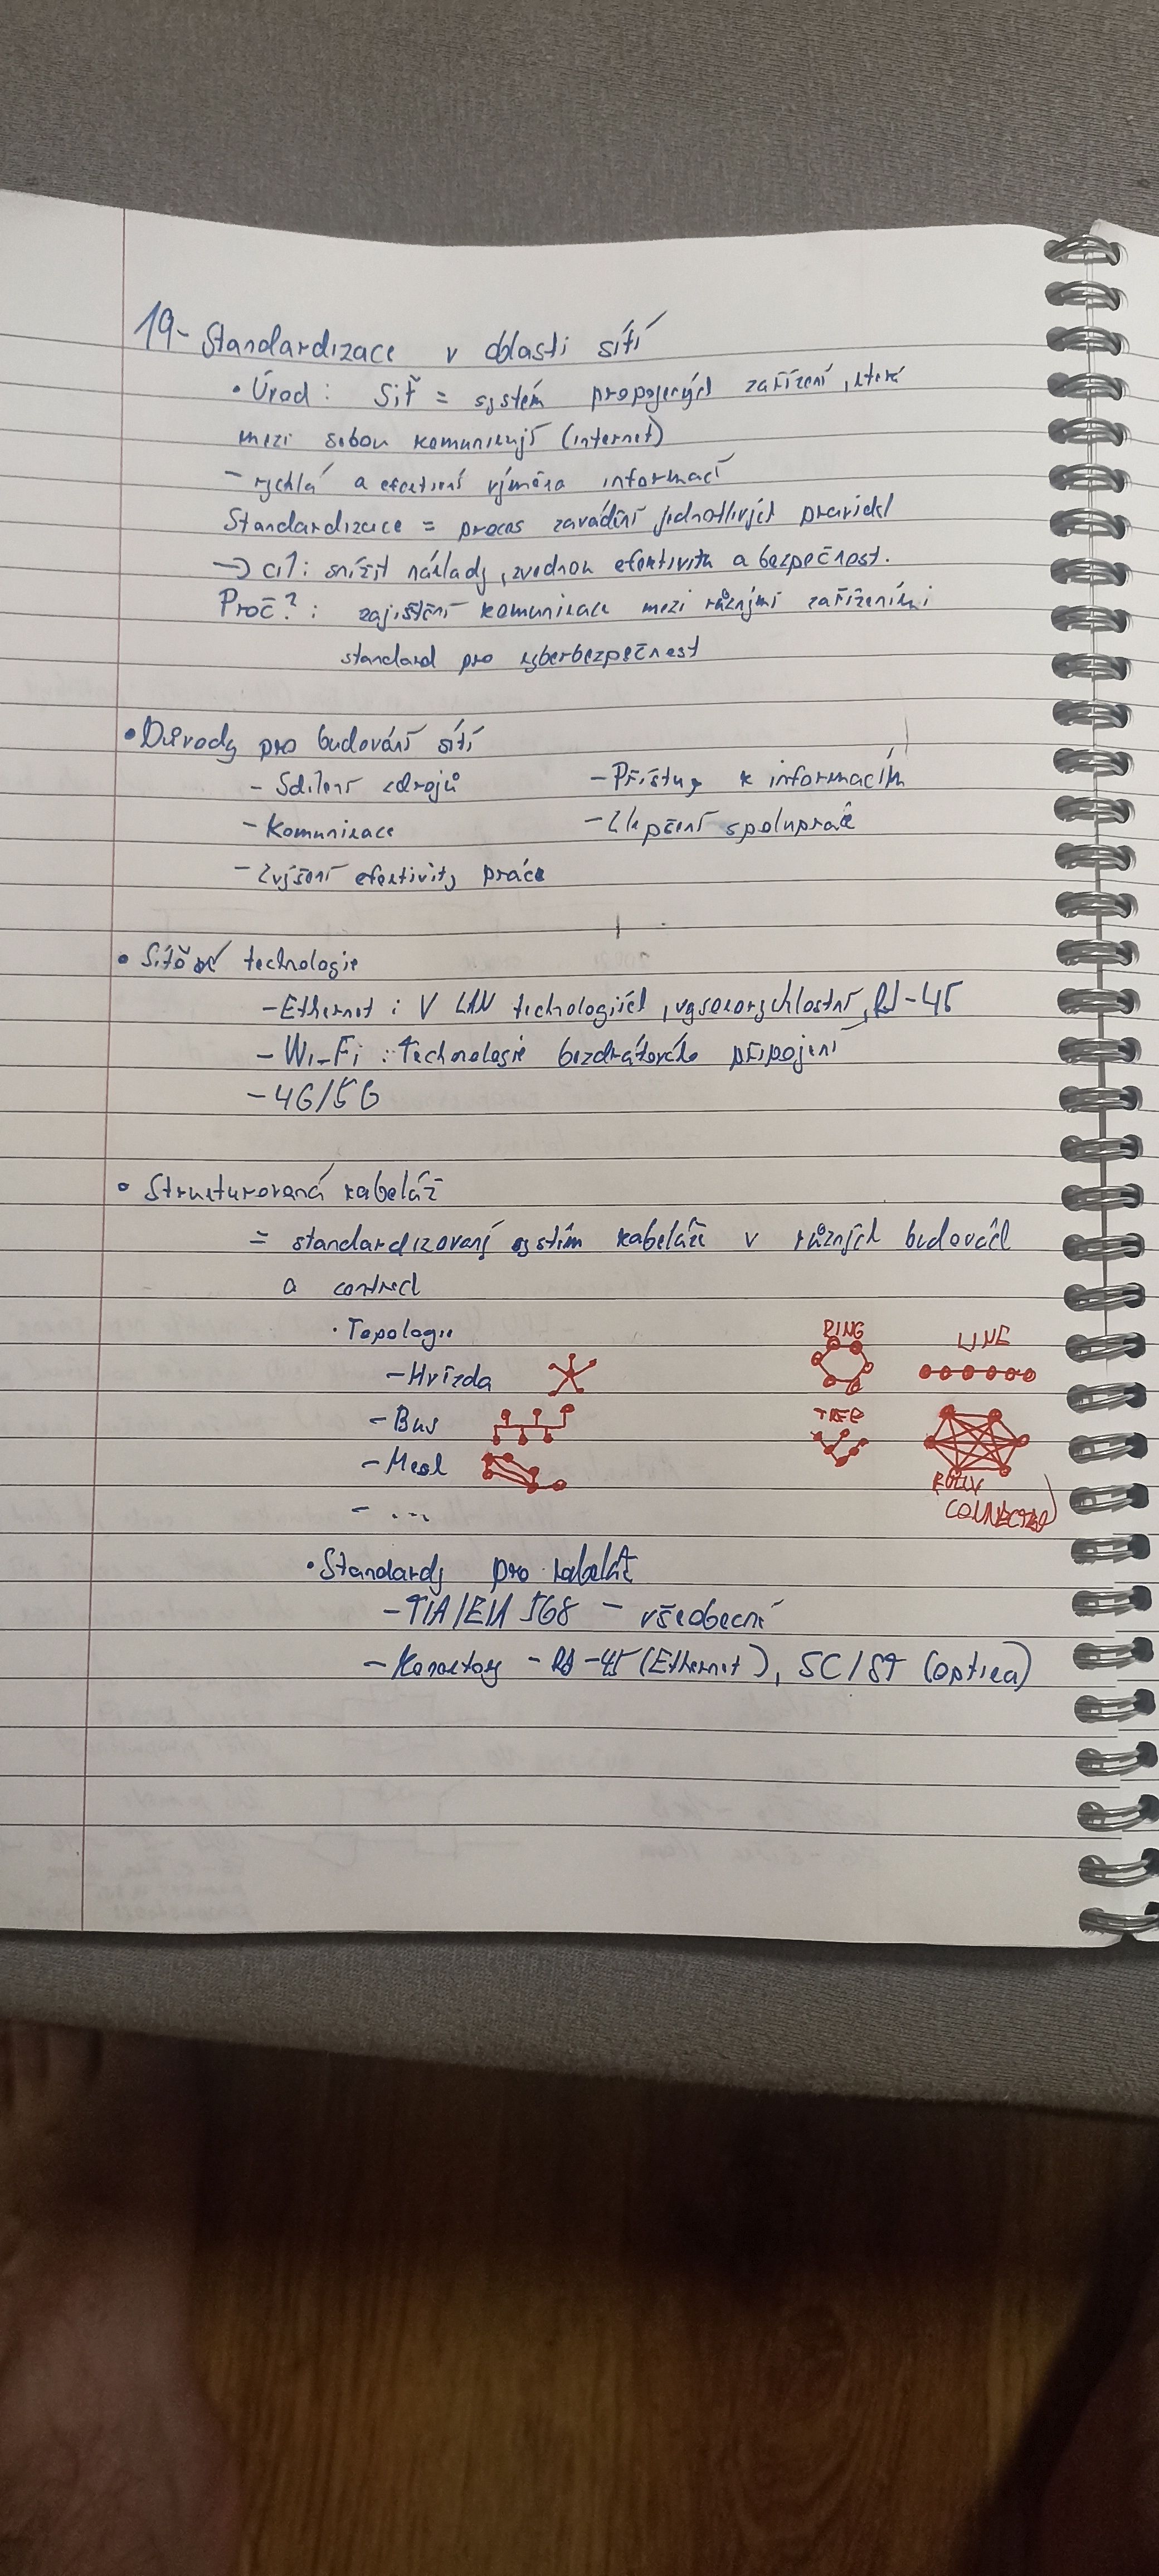 19- Standardizace v oblasti sítí
• Úvod: Siť = systém propojených zařízení, které
mezi sebou komunikují (internet)
- rychlá a efektivní výměna informací
Standardizace = proces zavádění jednotlivých pravidel
→ cíl: snížit náklady, zvednou efektivitu a bezpečnost.
Proč?: zajištění komunikace mezi různými zařízeními
standard pro kyberbezpečnost
• Důvody pro budování sítí
- Sdílení zdrojů - Přístup k informacím
- Komunikace - Zlepšení spolupráce
- Zvýšení efektivity práce
• Síťové technologie
- Ethernet: V LAN technologiích, vysokorychlostní, RJ-45
- Wi-Fi: Technologie bezdrátového připojení
- 4G/5G
• Strukturovaná kabeláž
= standardizovaný systém kabeláže v různých budovách
a
• Topologie
- Hvězda
RING
LINE
- Bus
TREE
- Mesh
FULLY
CONNECTED
- ...
• Standardy pro kabeláž
- TIA/EIA 568 - všeobecní
- Konektory - RJ-45 (Ethernet), SC/ST (optika)